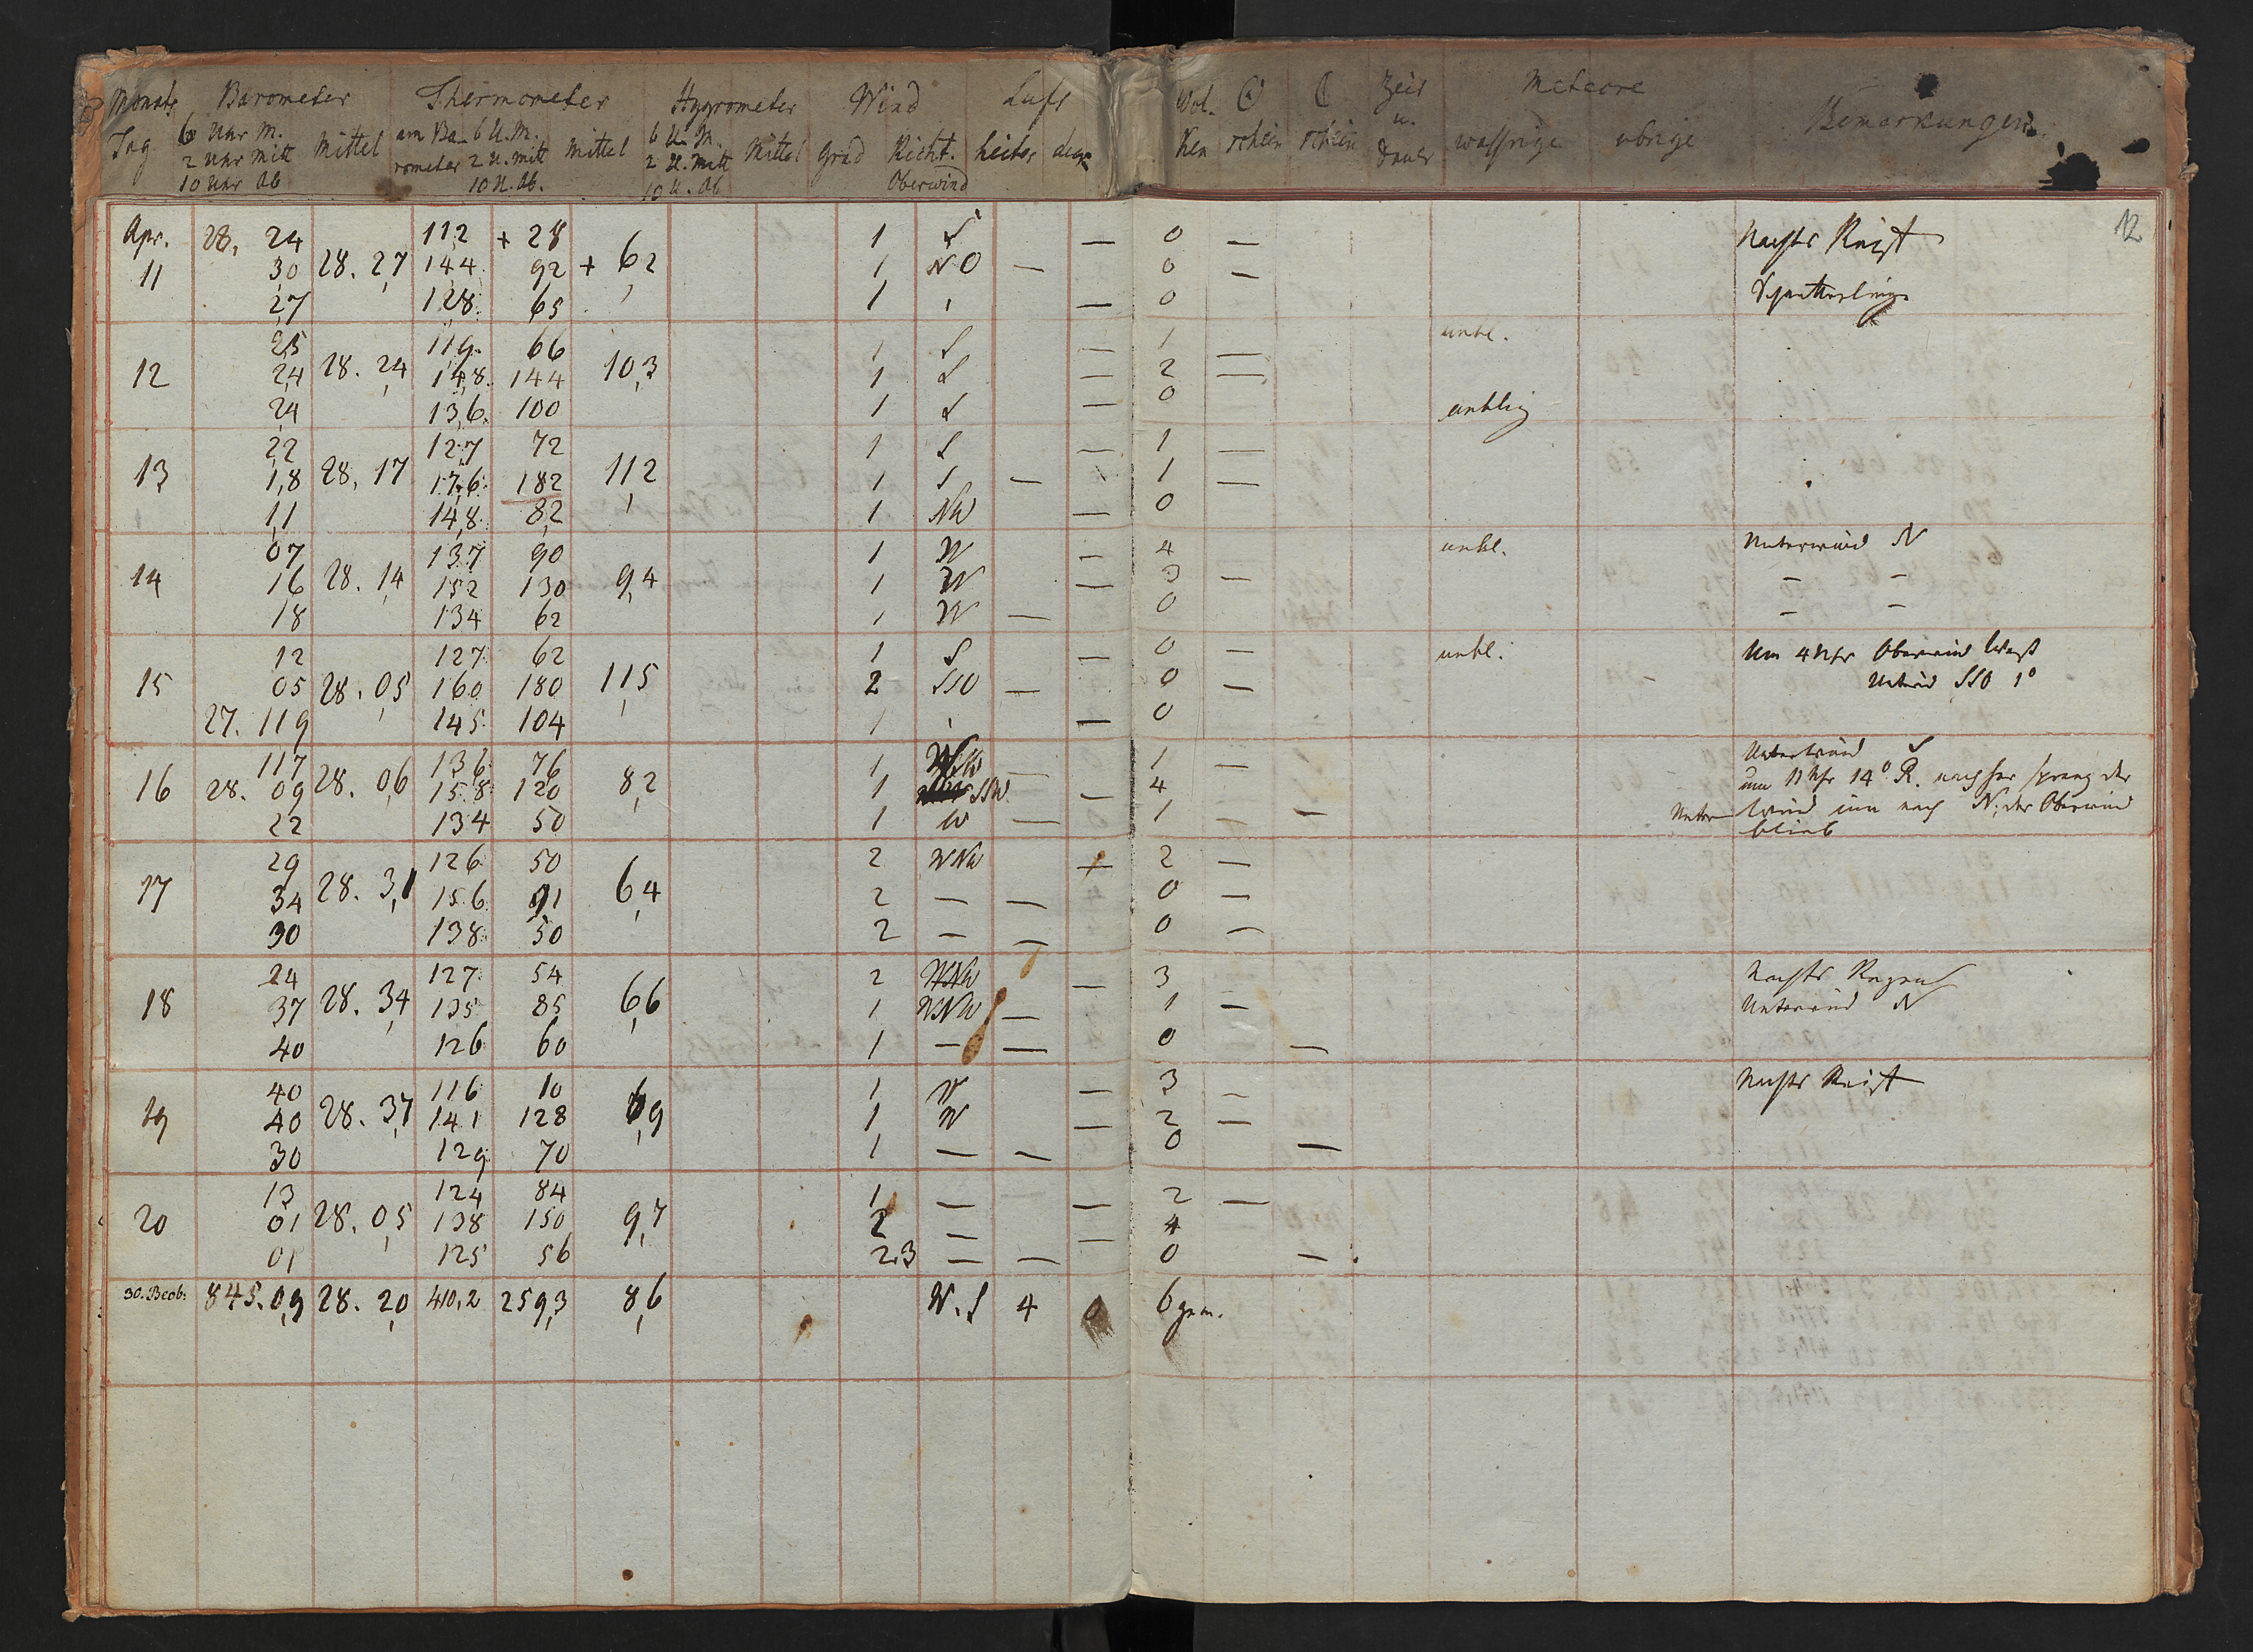 Monats Barometer Thermometer Hygrometer Wind Luft Wol. ☉ ☾ Zeit Meteore
Tag 6 Uhr M. Mittel am Ba- 6 U. M. Mittel 6 U. M. Mittel Grad Richt. heiter ken schein schein u. wassrige ubrige Bemerkungen
2 Uhr Mitt rometer 2 U. Mitt 2 U. Mitt Oberwind Dauer
10 Uhr Ab 10 U. Ab. 10 U. Ab
12
Apr. 28, 24 112 + 28 1 S — 0 — Nachts Reif
11 30 28. 27 144 92 + 62 1 NO — 0 —
27 128 65 1 — 0 Schmetterlinge
25 119 66 1 S — 1 — unbl.
12 24 28. 24 148 144 103 1 S — 2 —
24 136 100 1 S — 0
22 127 72 1 S — 1 —
13 18 28, 17 176 182 112 1 S — 1 —
11 148 82 1 NW — 0
07 137 90 1 W — 4 unbl. Unterwind N
14 16 28. 14 152 130 94 1 W — 3 — — —
18 134 62 1 W — 0 — —
12 127 62 1 S — 0 — unbl. Um 4 Uhr Oberwind West
15 05 28. 05 160 180 115 2 SSO — 0 — SSO 1°
27. 119 145 104 1 — 0
117 136 76 1 — 1 — Unterwind S
16 28. 09 28. 06 158 120 82 1 SSW — 4 um 11 Uhr 14° R. nachher sprang der
22 134 50 1 W — 1 — — Unter wind um nach N; der Oberwind
blieb
29 126 50 2 WNW — 2 —
17 34 28. 31 156 91 64 2 — — 0 —
30 138 50 2 — — 0 —
24 127 54 2 WNW — 3 Nachts Regen
18 37 28. 34 135 85 66 1 WNW — 1 — Unterwind N
40 126 60 1 — — 0 —
40 116 10 1 W — 3 — Nachts Reif
19 40 28. 37 141 128 69 1 W — 2 —
30 129 70 1 — — 0 —
13 124 84 1 — — 2 —
20 01 28. 05 138 150 97 2 — — 4
01 125 56 2.3 — — 0 —
30. Beob: 845. 09 28. 20 410,2 259,3 8,6 W. S 4 0 6 gem.